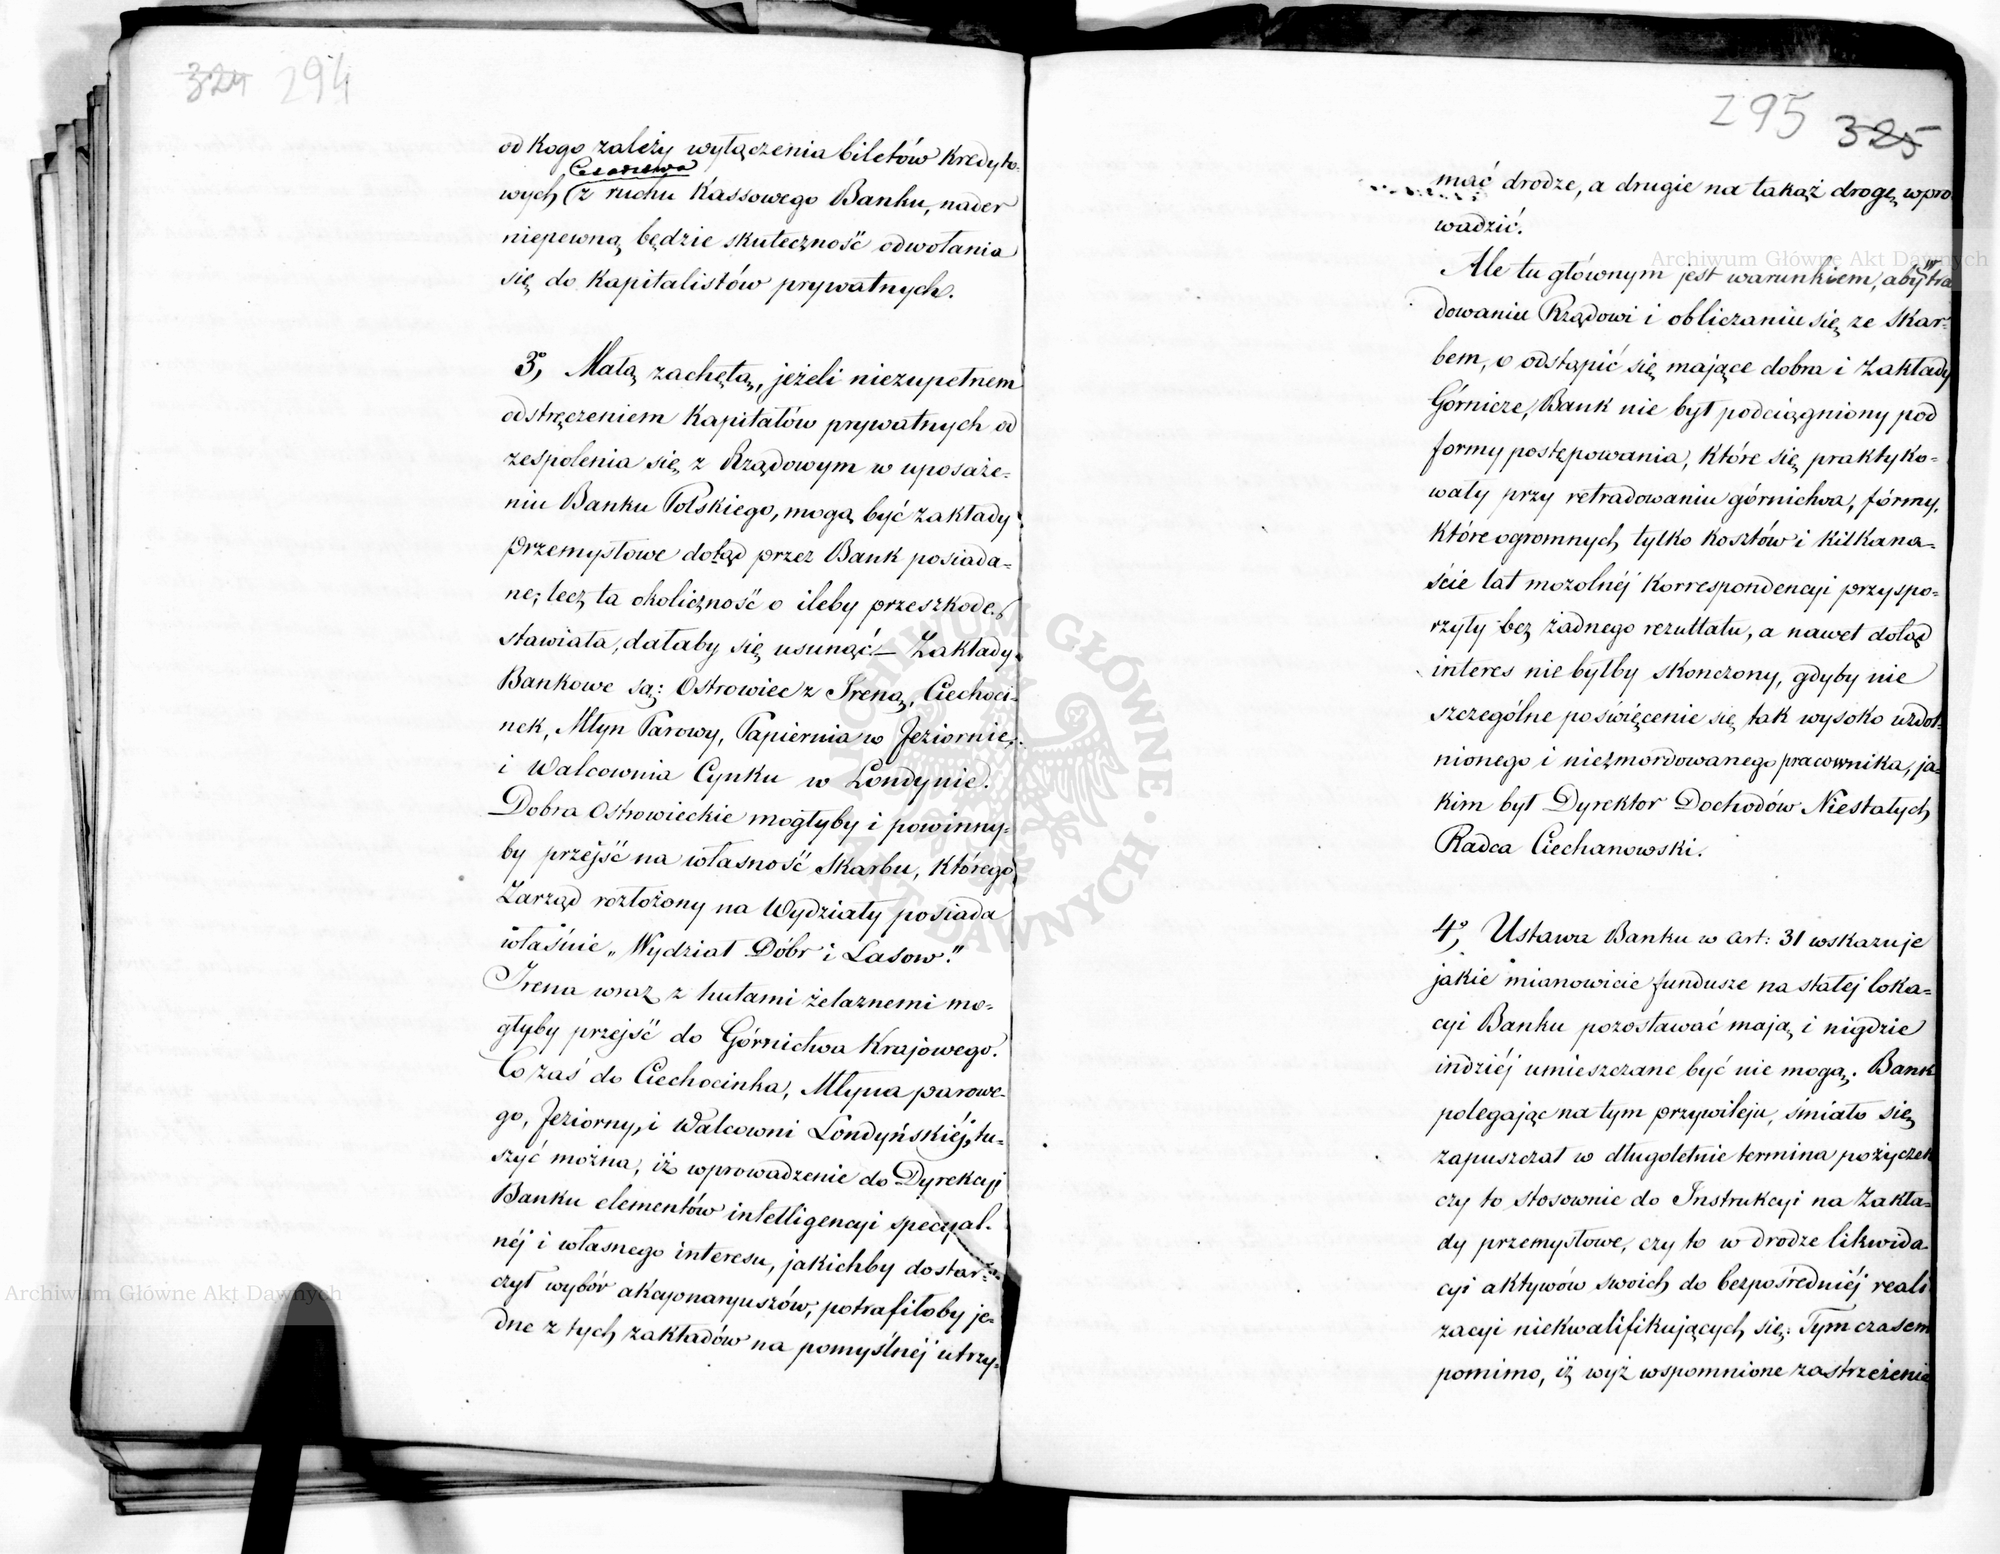 324 294
od kogo zależy wyłączenia biletów kredyto-
Cesarstwa
wych z ruchu Kassowego Banku, nader
niepewną będzie skuteczność odwołania
się do Kapitalistów prywatnych.
3º, Małą zachętą, jeżeli niezupełnem
odstręczeniem Kapitałów prywatnych od
zespolenia się z Rządowym w uposaże-
niu Banku Polskiego, mogą być zakłady
przemysłowe dotąd przez Bank posiada-
ne; lecz ta okoliczność o ileby przeszkodę
stawiała, dałaby się usunąć. – Zakłady
Bankowe są: Ostrowiec z Ireną, Ciechoci-
nek, Młyn Parowy, Papiernia w Jeziornie,
i Walcownia Cynku w Londynie.
Dobra Ostrowieckie mogłyby i powinny-
by przejść na własność Skarbu, którego
Zarząd rozłożony na Wydziały posiada
właśnie „Wydział Dóbr i Lasow."
Irena wraz z hutami żelaznemi mo-
głyby przejść do Górnictwa Krajowego.
Co zaś do Ciechocinka, Młyna parowe-
go, Jeziorny, i Walcowni Londyńskiéj, tu-
szyć można, iż wprowadzenie do Dyrekcyi
Banku elementów intelligencyi specyal-
néj i własnego interesu, jakichby dostar-
czył wybór akcyonaryuszów, potrafiłoby je-
dne z tych zakładów na pomyślnéj utrzy-
295 325
mać drodze, a drugie na takąż drogę wpro-
wadzić.
Ale tu głównym jest warunkiem, aby w tra-
dowaniu Rządowi i obliczaniu się ze Skar-
bem, o odstąpić się mające dobra i Zakłady
Górnicze, Bank nie był podciągniony pod
formy postępowania, które się praktyko-
wały przy retradowaniu górnictwa, fórmy,
które ogromnych tylko kosztów i kilkana-
ście lat mozolnéj korrespondencyi przyspo-
rzyły bez żadnego rezultatu, a nawet dotąd
interes nie byłby skonczony, gdyby nie
szczególne poświęcenie się tak wysoko uzdol-
nionego i niezmordowanego pracownika, ja-
kim był Dyrektor Dochodów Niestałych
Radca Ciechanowski.
4º, Ustawa Banku w art: 31 wskazuje
jakie mianowicie fundusze na stałej loka-
cyi Banku pozostawać mają i nigdzie
indziéj umieszczane być nie mogą. Bank
polegając na tym przywileju, śmiało się
zapuszczał w długoletnie termina pożyczek
czy to stosownie do Instrukcyi na Zakła-
dy przemysłowe, czy to w drodze likwida-
cyi aktywów swoich do bezpośredniéj reali
zacyi niekwalifikujących się: Tymczasem
pomimo, iż wyż wspomnione zastrzeżenie
Archiwum Główne Akt Dawnych
Archiwum Główne Akt Dawnych
ARCHIWUM GŁÓWNE AKT DAWNYCH